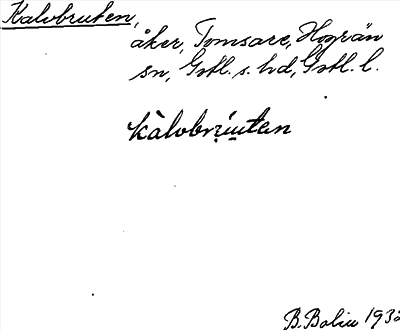 Kalvbruten,
åker, Tomsare, Hogrän
sn, Gotl. s. hd, Gotl. l.
kàlvbrúttan
B. Bolin 1932